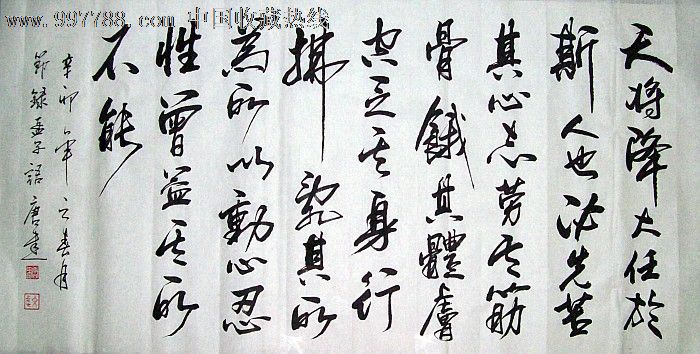 www.997788.com 中国收藏热线
天将降大任於
斯人也必先苦
其心志劳其筋
骨餓其體膚
空乏其身行
拂亂其所
為所以動心忍
性曾益其所
不能
辛卯年之春月
節録孟子語 唐